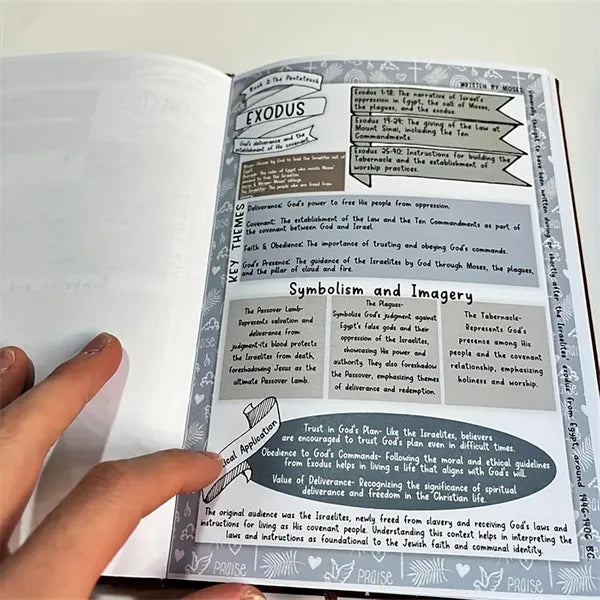 Book 2: The Pentateuch
EXODUS
God's deliverance and the
establishment of His covenant
WRITTEN BY MOSES
Exodus 1-18: The narrative of Israel's
oppression in Egypt, the call of Moses,
the plagues, and the exodus.
Exodus 19-24: The giving of the Law at
Mount Sinai, including the Ten
Commandments.
Exodus 25-40: Instructions for building the
Tabernacle and the establishment of
worship practices.
Moses: Chosen by God to lead the Israelites out of
Egypt.
Pharaoh: The ruler of Egypt who resists Moses'
Aaron & Miriam: Moses' siblings
The Israelites: The people who are freed from
KEY THEMES
Deliverance: God's power to free His people from oppression.
Covenant: The establishment of the Law and the Ten Commandments as part of
the covenant between God and Israel.
Faith & Obedience: The importance of trusting and obeying God's commands.
God's Presence: The guidance of the Israelites by God through Moses, the plagues,
and the pillar of cloud and fire.
Symbolism and Imagery
The Passover Lamb-
Represents salvation and
deliverance from
judgment-its blood protects
the Israelites from death,
foreshadowing Jesus as the
ultimate Passover Lamb.
The Plagues-
Symbolize God's judgment against
Egypt's false gods and their
oppression of the Israelites,
showcasing His power and
authority. They also foreshadow
the Passover, emphasizing themes
of deliverance and redemption.
The Tabernacle-
Represents God's
presence among His
people and the covenant
relationship, emphasizing
holiness and worship.
ical Application
Trust in God's Plan- Like the Israelites, believers
are encouraged to trust God's plan even in difficult times.
Obedience to God's Commands- Following the moral and ethical guidelines
from Exodus helps in living a life that aligns with God's will.
Value of Deliverance- Recognizing the significance of spiritual
deliverance and freedom in the Christian life.
The original audience was the Israelites, newly freed from slavery and receiving God's laws and
instructions for living as His covenant people. Understanding this context helps in interpreting the
laws and instructions as foundational to the Jewish faith and communal identity.
thought to have been written during or shortly after the Israelites' exodus from Egypt, around 1446-1406 BC
PRAISE
PRAISE
PRAISE